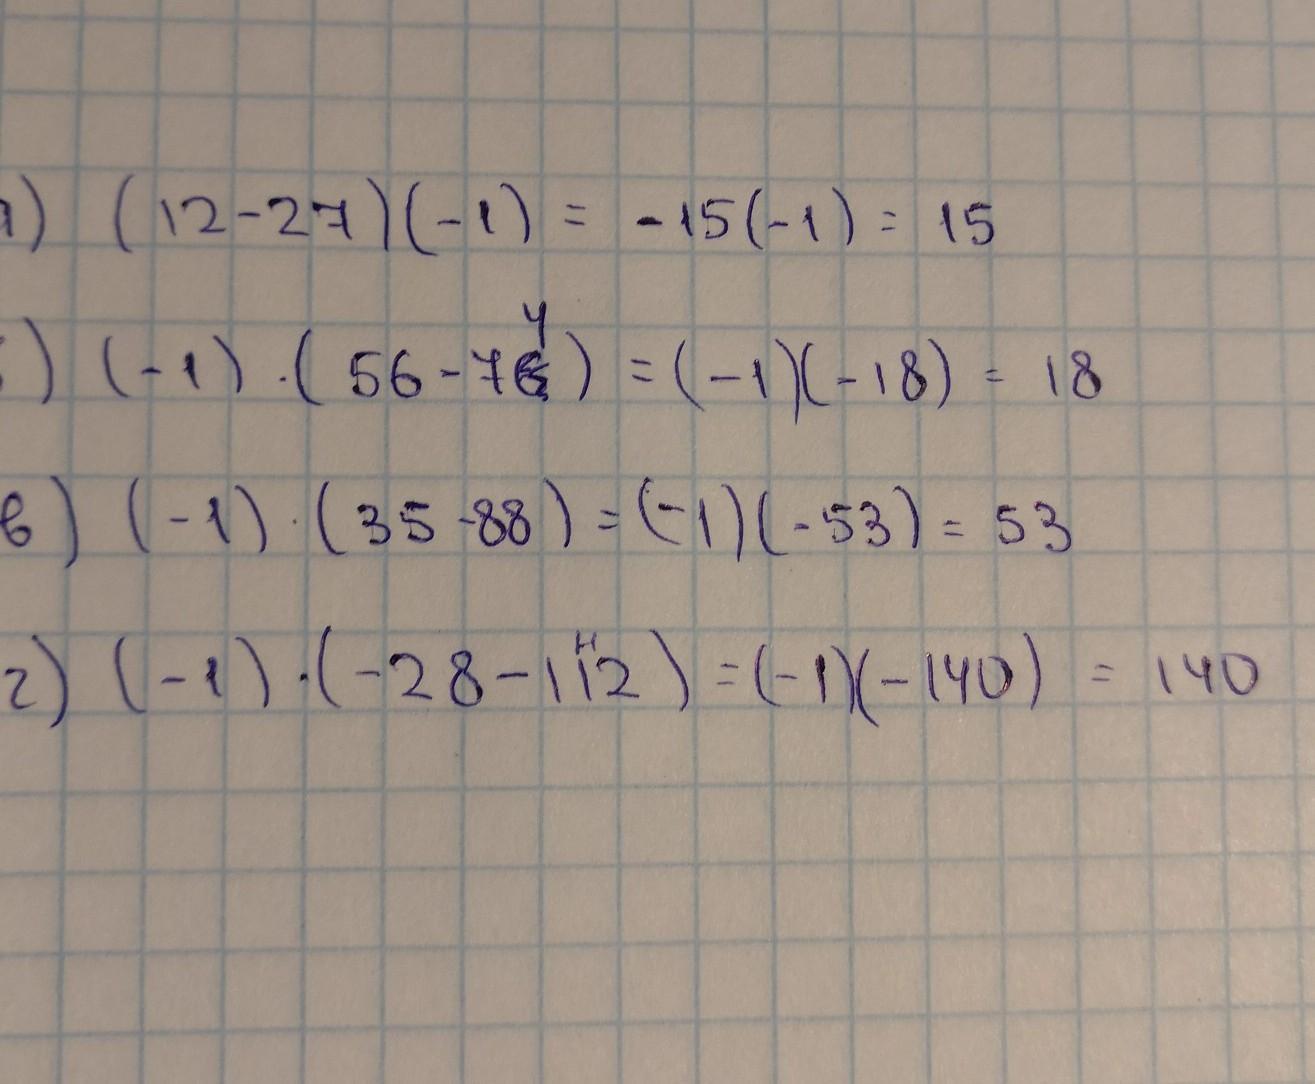 а) (12-27)(-1) = -15(-1) = 15
) (-1)·(56-74) = (-1)(-18) = 18
в) (-1)·(35-88) = (-1)(-53) = 53
г) (-1)·(-28-112) = (-1)(-140) = 140